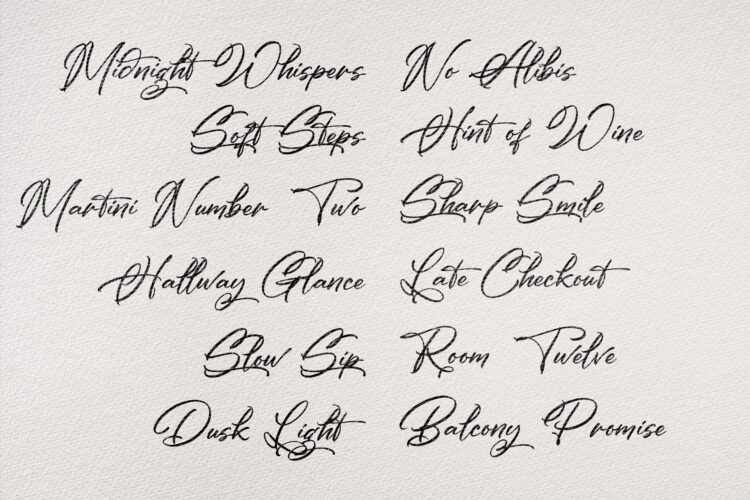 Midnight Whispers No Alibis
Soft Steps Hint of Wine
Martini Number Two Sharp Smile
Hallway Glance Late Checkout
Slow Sip Room Twelve
Dusk Light Balcony Promise